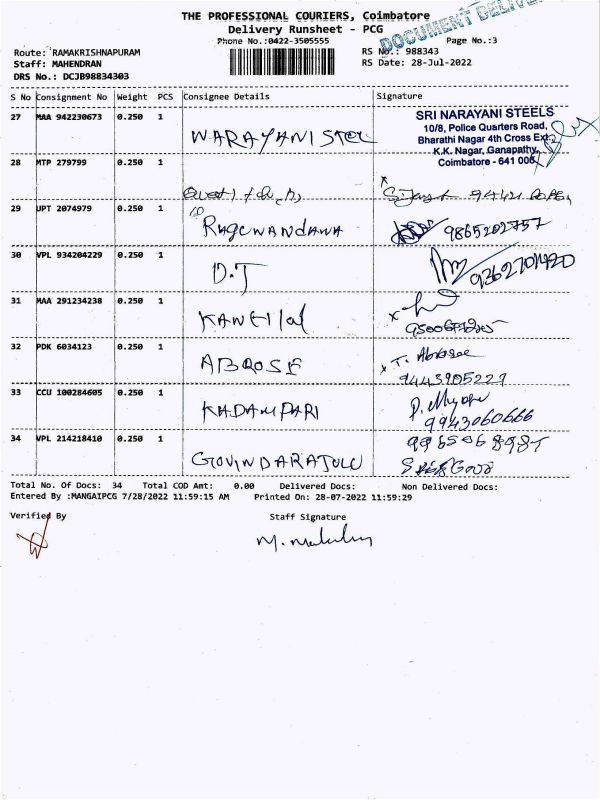 THE PROFESSIONAL COURIERS, Coimbatore
Delivery Runsheet - PCG
DOCUMENT DELIVE
Phone No.:0422-3505555 Page No.:3
Route: RAMAKRISHNAPURAM RS No.: 988343
Staff: MAHENDRAN RS Date: 28-Jul-2022
DRS No.: DCJB98834303
S No Consignment No Weight PCS Consignee Details Signature
27 MAA 942230673 0.250 1 WARAYANI STEEL
SRI NARAYANI STEELS
10/8, Police Quarters Road,
Bharathi Nagar 4th Cross Ext
K.K. Nagar, Ganapathy,
Coimbatore - 641 006
28 MTP 279799 0.250 1
29 UPT 2074979 0.250 1 RAGUWANDANA
9865202757
30 VPL 934204229 0.250 1 D.T
9362701420
31 MAA 291234238 0.250 1 KANEIlal
32 PDK 6034123 0.250 1 ABROSE
x T. Abrose
9443905229
33 CCU 100284605 0.250 1 KADAMPARI
9943060666
34 VPL 214218410 0.250 1 GOVINDARAJULU
Total No. Of Docs: 34 Total COD Amt: 0.00 Delivered Docs: Non Delivered Docs:
Entered By :MANGAIPCG 7/28/2022 11:59:15 AM Printed On: 28-07-2022 11:59:29
Verified By Staff Signature